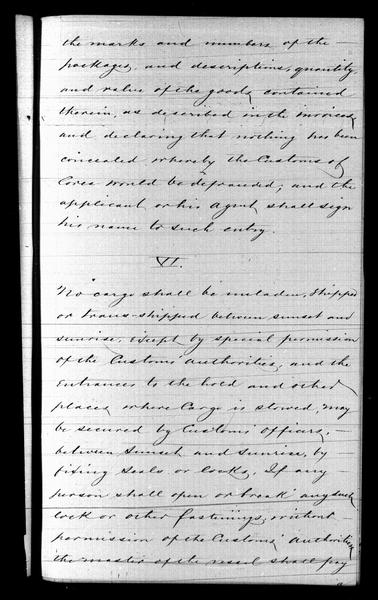 the marks and numbers of the
packages, and descriptions, quantity
and value of the goods contained
therein, as described in the invoices,
and declaring that nothing has been
concealed whereby the Customs of
Corea would be defrauded; and the
applicant or his Agent shall sign
his name to such entry.
VI.
No cargo shall be unladen, shipped
or trans-shipped between sunset and
sunrise, except by special permission
of the Customs' authorities, and the
Entrances to the hold and other
places where Cargo is stowed, may
be secured by Customs' Officers,
between Sunset and Sunrise, by
fixing Seals or locks. If any
person shall open or break any such
lock or other fastenings, without
permission of the Customs' authorities
the master of the vessel shall pay
a